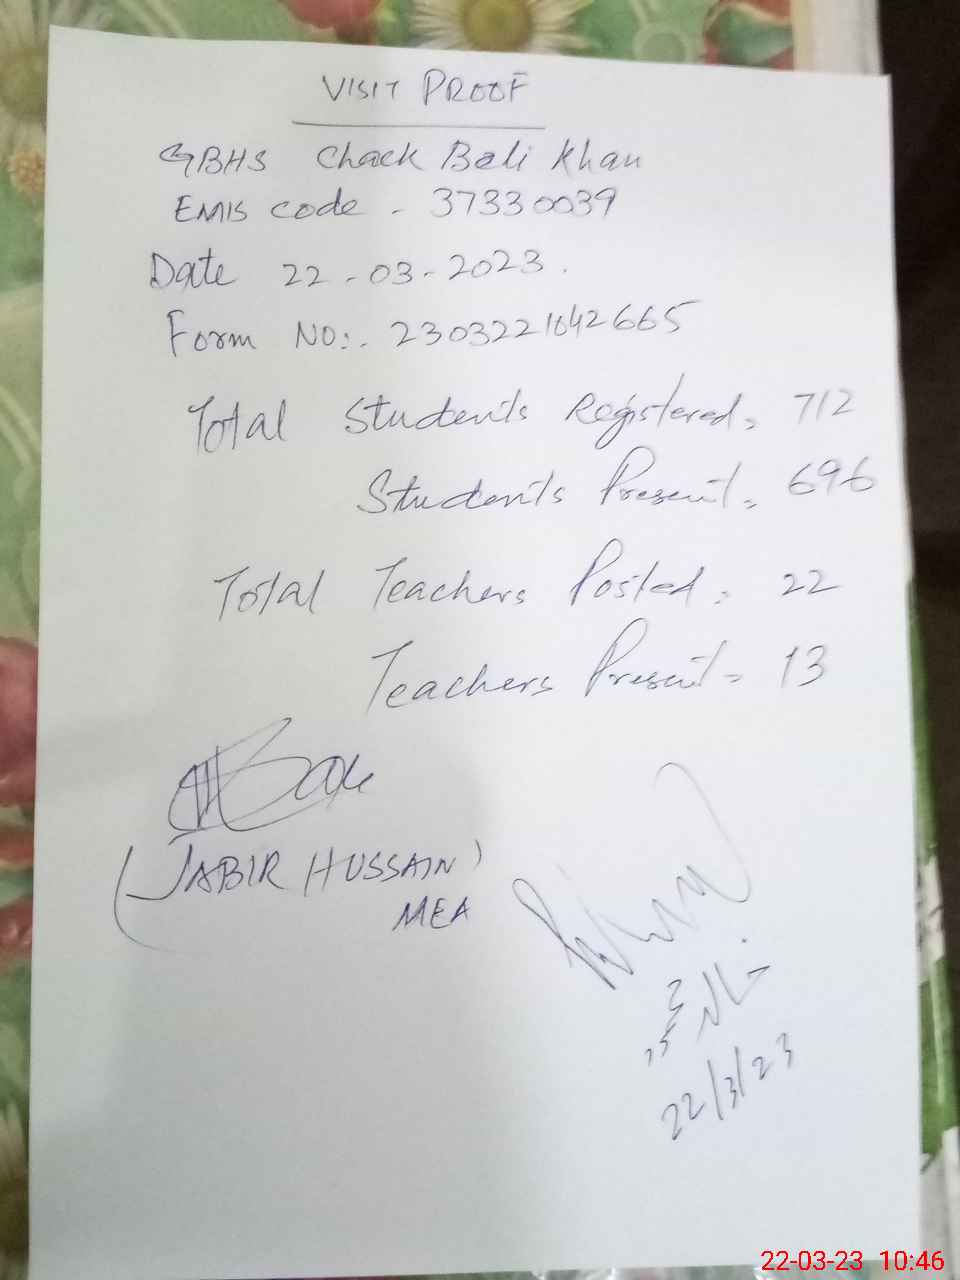 VISIT PROOF
GBHS Chack Bali Khan
EMIS code - 37330039
Date 22-03-2023.
Form NO:. 2303221042665
Total Students Registered = 712
Students Present = 696
Total Teachers Posted = 22
Teachers Present = 13
(JABIR HUSSAIN)
MEA
22/3/23
22-03-23 10:46